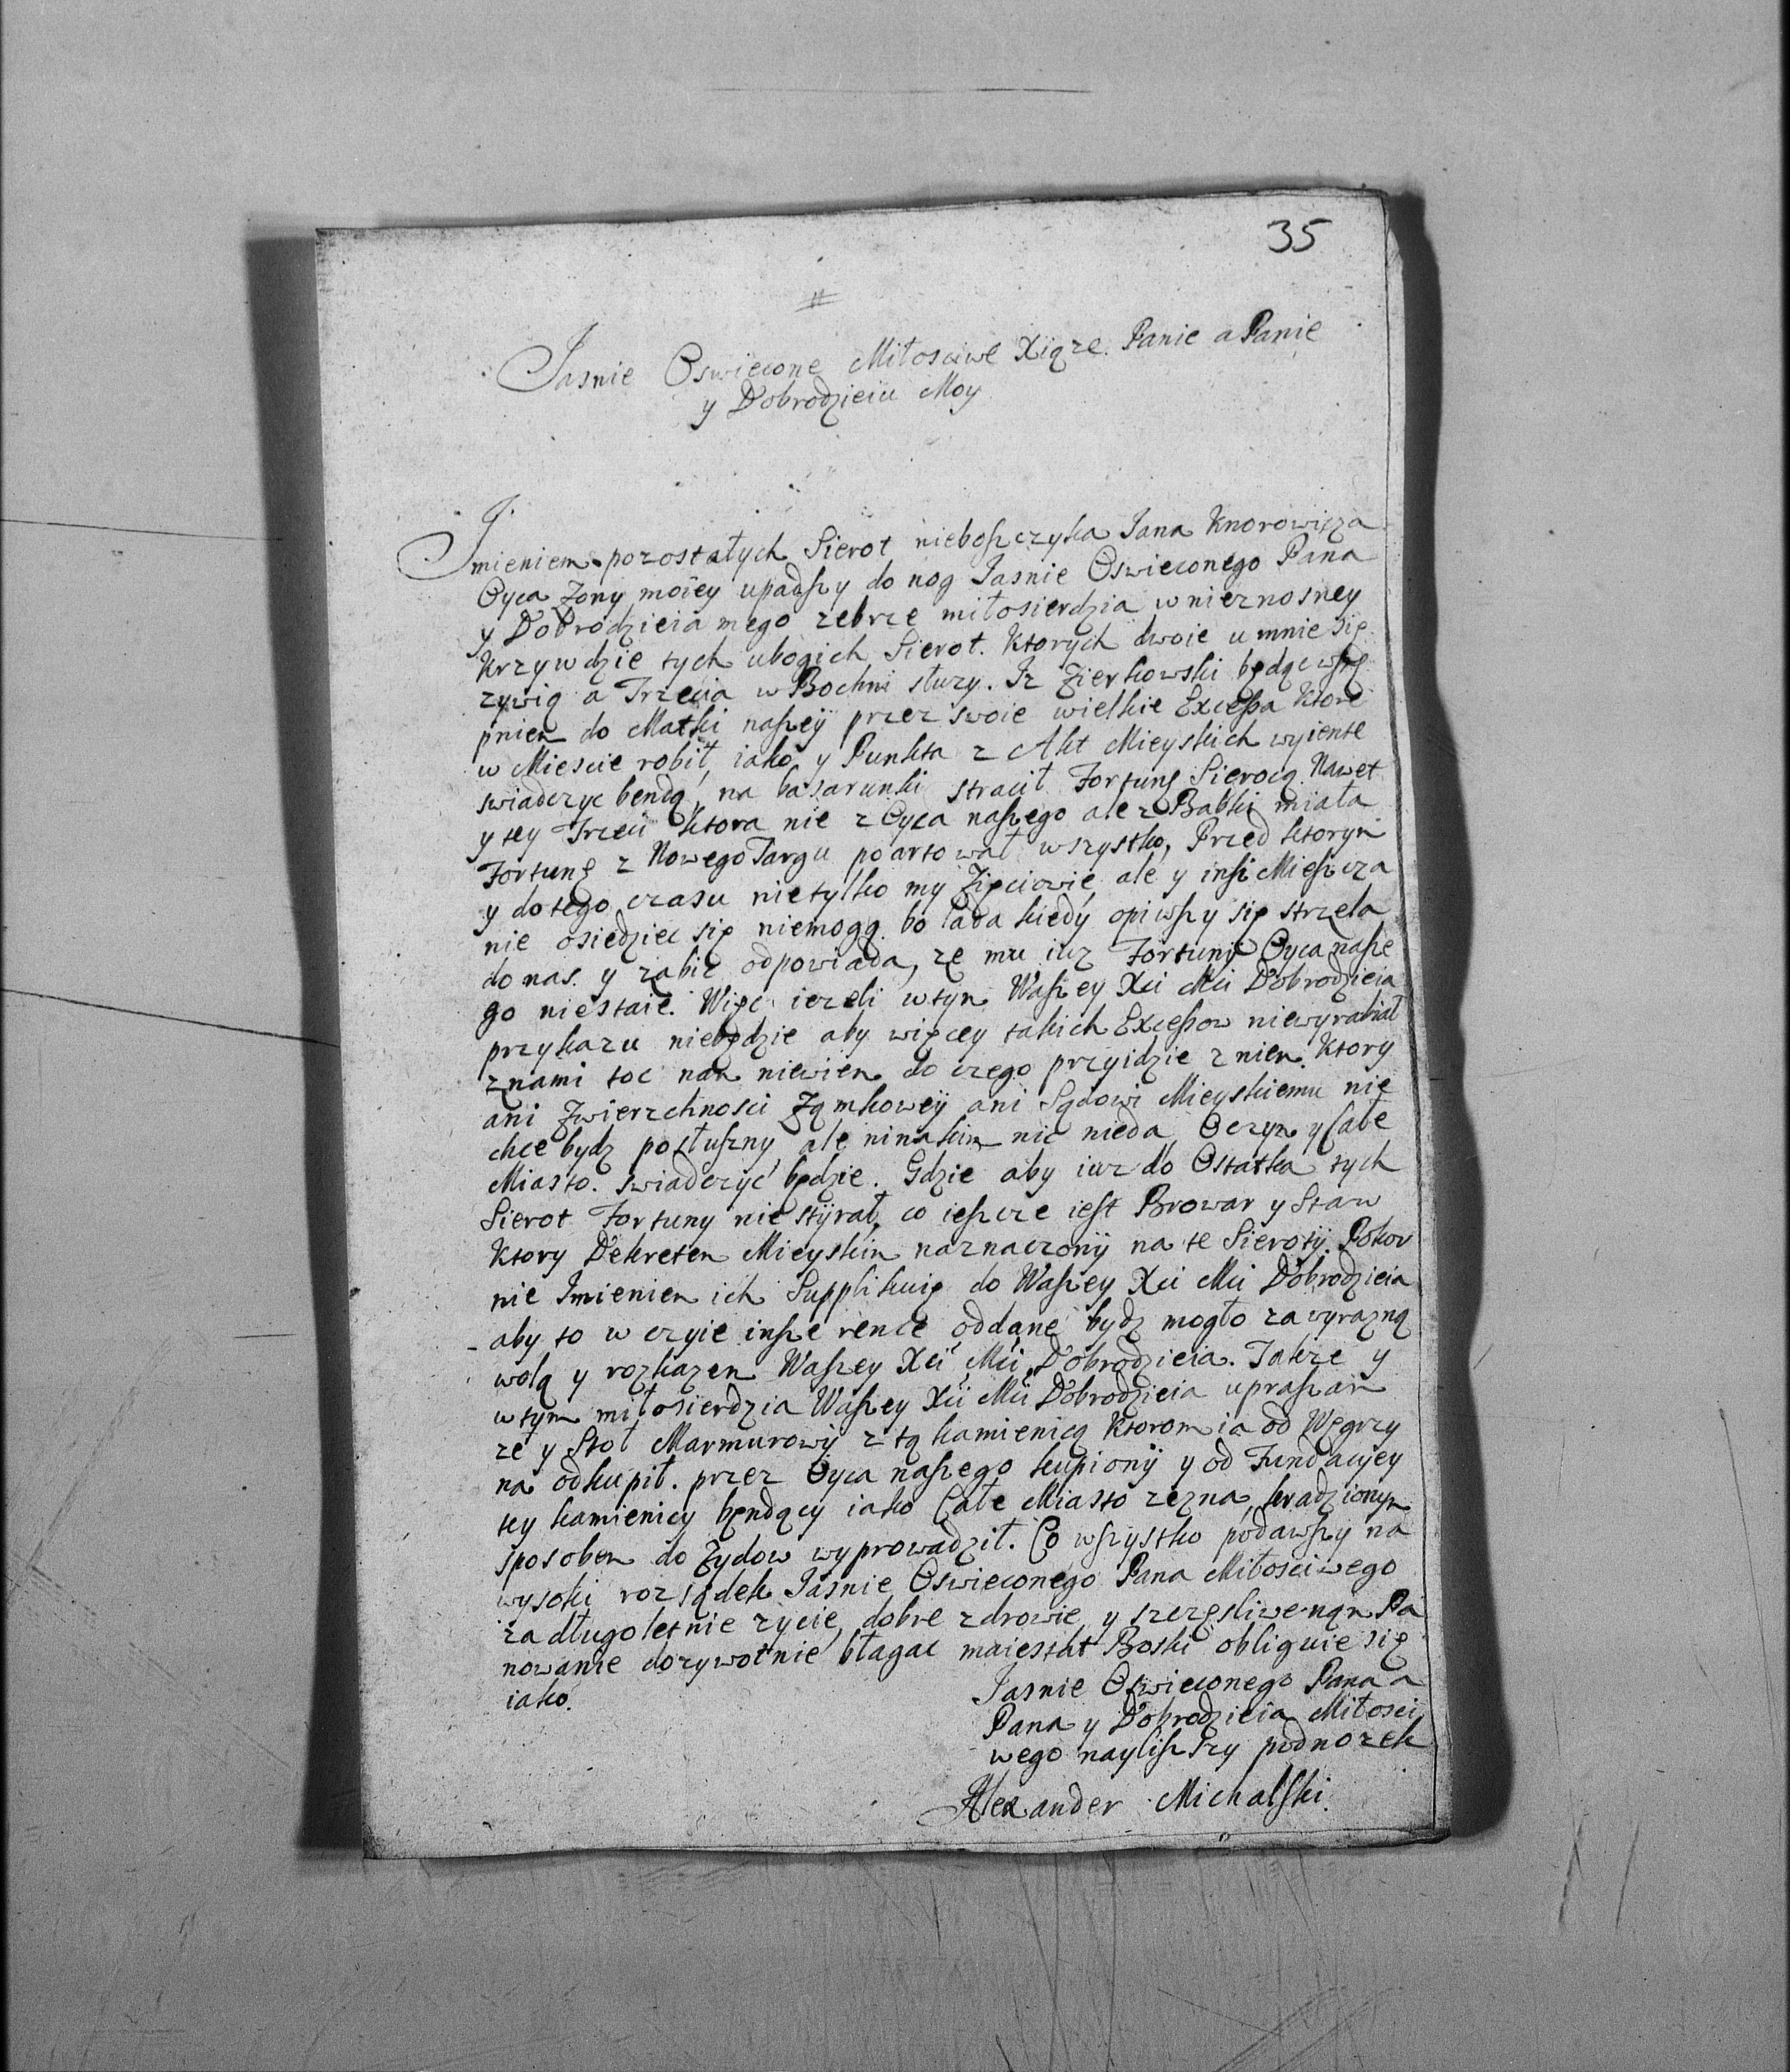 35
Jasnie Oswiecone Miłosciwe Xiąze Panie a Panie
y Dobrodzieiu Moy
Jmieniem pozostałych Sierot nieboszczyka Jana Knorowicza
Oyca Zony moiey upadszy do nog Jasnie Oswieconego Pana
y Dobrodzieia mego zebrze miłosierdzia w nieznosney
krzywdzie tych ubogich Sierot. Ktorych dwoie u mnie się
zywią a Trzecia w Bochni słuzy. Iz Zierkowski będąc wstę
pniem do Matki naszey przez swoie wielkie Excessa ktore
w Miescie robił, iako y Punkta z Akt Mieyskich wyiente
swiadczyc bendą, na basarunki stracił Fortunę Sierocą. Nawet
y tey Trzeci ktora nie z Oyca naszego ale z Babki miała
Fortunę z Nowego Targu poartował wszystko, Przed ktorym
y do tego czasu nietylko my Zięciowie, ale y inszi Miescza
nie osiedziec się niemogą. bo lada kiedy opiwszy się strzela
do nas. y zabic odpowiada, ze mu iuz Fortuny Oyca nasze
go niestaie. Więc iezeli w tym Waszey Xci Mci Dobrodzieia
przykazu niebędzie aby więcey takich Excessow niewyrabiał
z nami toc nam niewiem do czego przyidzie z niem. Ktory
ani Zwierzchnosci Zamkowey ani Sądowi Mieyskiemu nie
chce bydz posłuszny, ale ninakim nic nieda, Oczym y Całe
Miasto. swiadczyć będzie. Gdzie aby iuz do Ostatka tych
Sierot Fortuny nie styrał, co ieszcze iest Browar y Staw
Ktory Dekretem Mieyskim naznaczony na te Sieroty. Pokor
nie Jmieniem ich Supplikuię do Waszey Xci Mci Dobrodzieia
aby to w czyie insze rence oddane bydz mogło za wyrazną
wolą y rozkazem Waszey Xci Mci Dobrodzieia. Takze y
w tym miłosierdzia Waszey Xci Mci Dobrodzieia upraszam
ze y Stoł Marmurowy z tą kamienicą ktorom ia od Węgrzy
na odkupił. przez Oyca naszego kupiony y od Fundacyey
tey kamienicy bendący iako Całe Miasto zezna, kradzionym
sposobem do Zydow wyprowadził. Co wszystko podawszy na
wysoki rozsądek Jasnie Oswieconego Pana Miłosciwego
za długoletnie zycie, dobre zdrowie y szczęsliwe nam Pa
nowanie dozywotnie błagac maiestat Boski obliguie się
iako.
Jasnie Oswieconego Pana a
Pana y Dobrodzieia Miłosci
wego nayliszszy podnozek
Alexander Michalski.